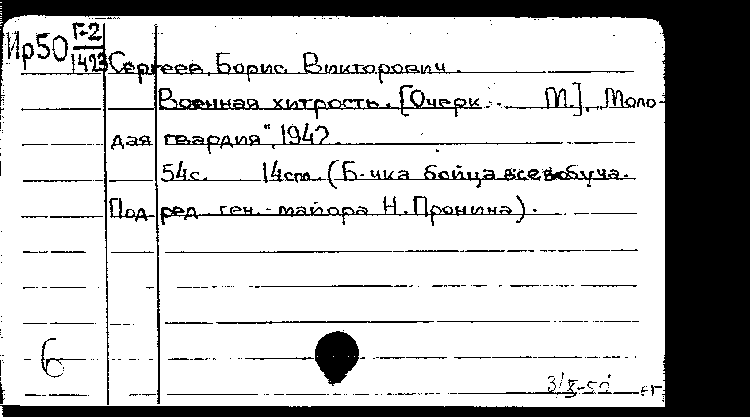 Ир50 Г-2/1423
Сергеев, Борис Викторович.
Военная хитрость. [Очерк. М.], Моло-
дая гвардия", 1942.
54с. 14см. (Б-чка бойца всевобуча.
Под ред. ген.-майора Н. Пронина).
6
3/X-50